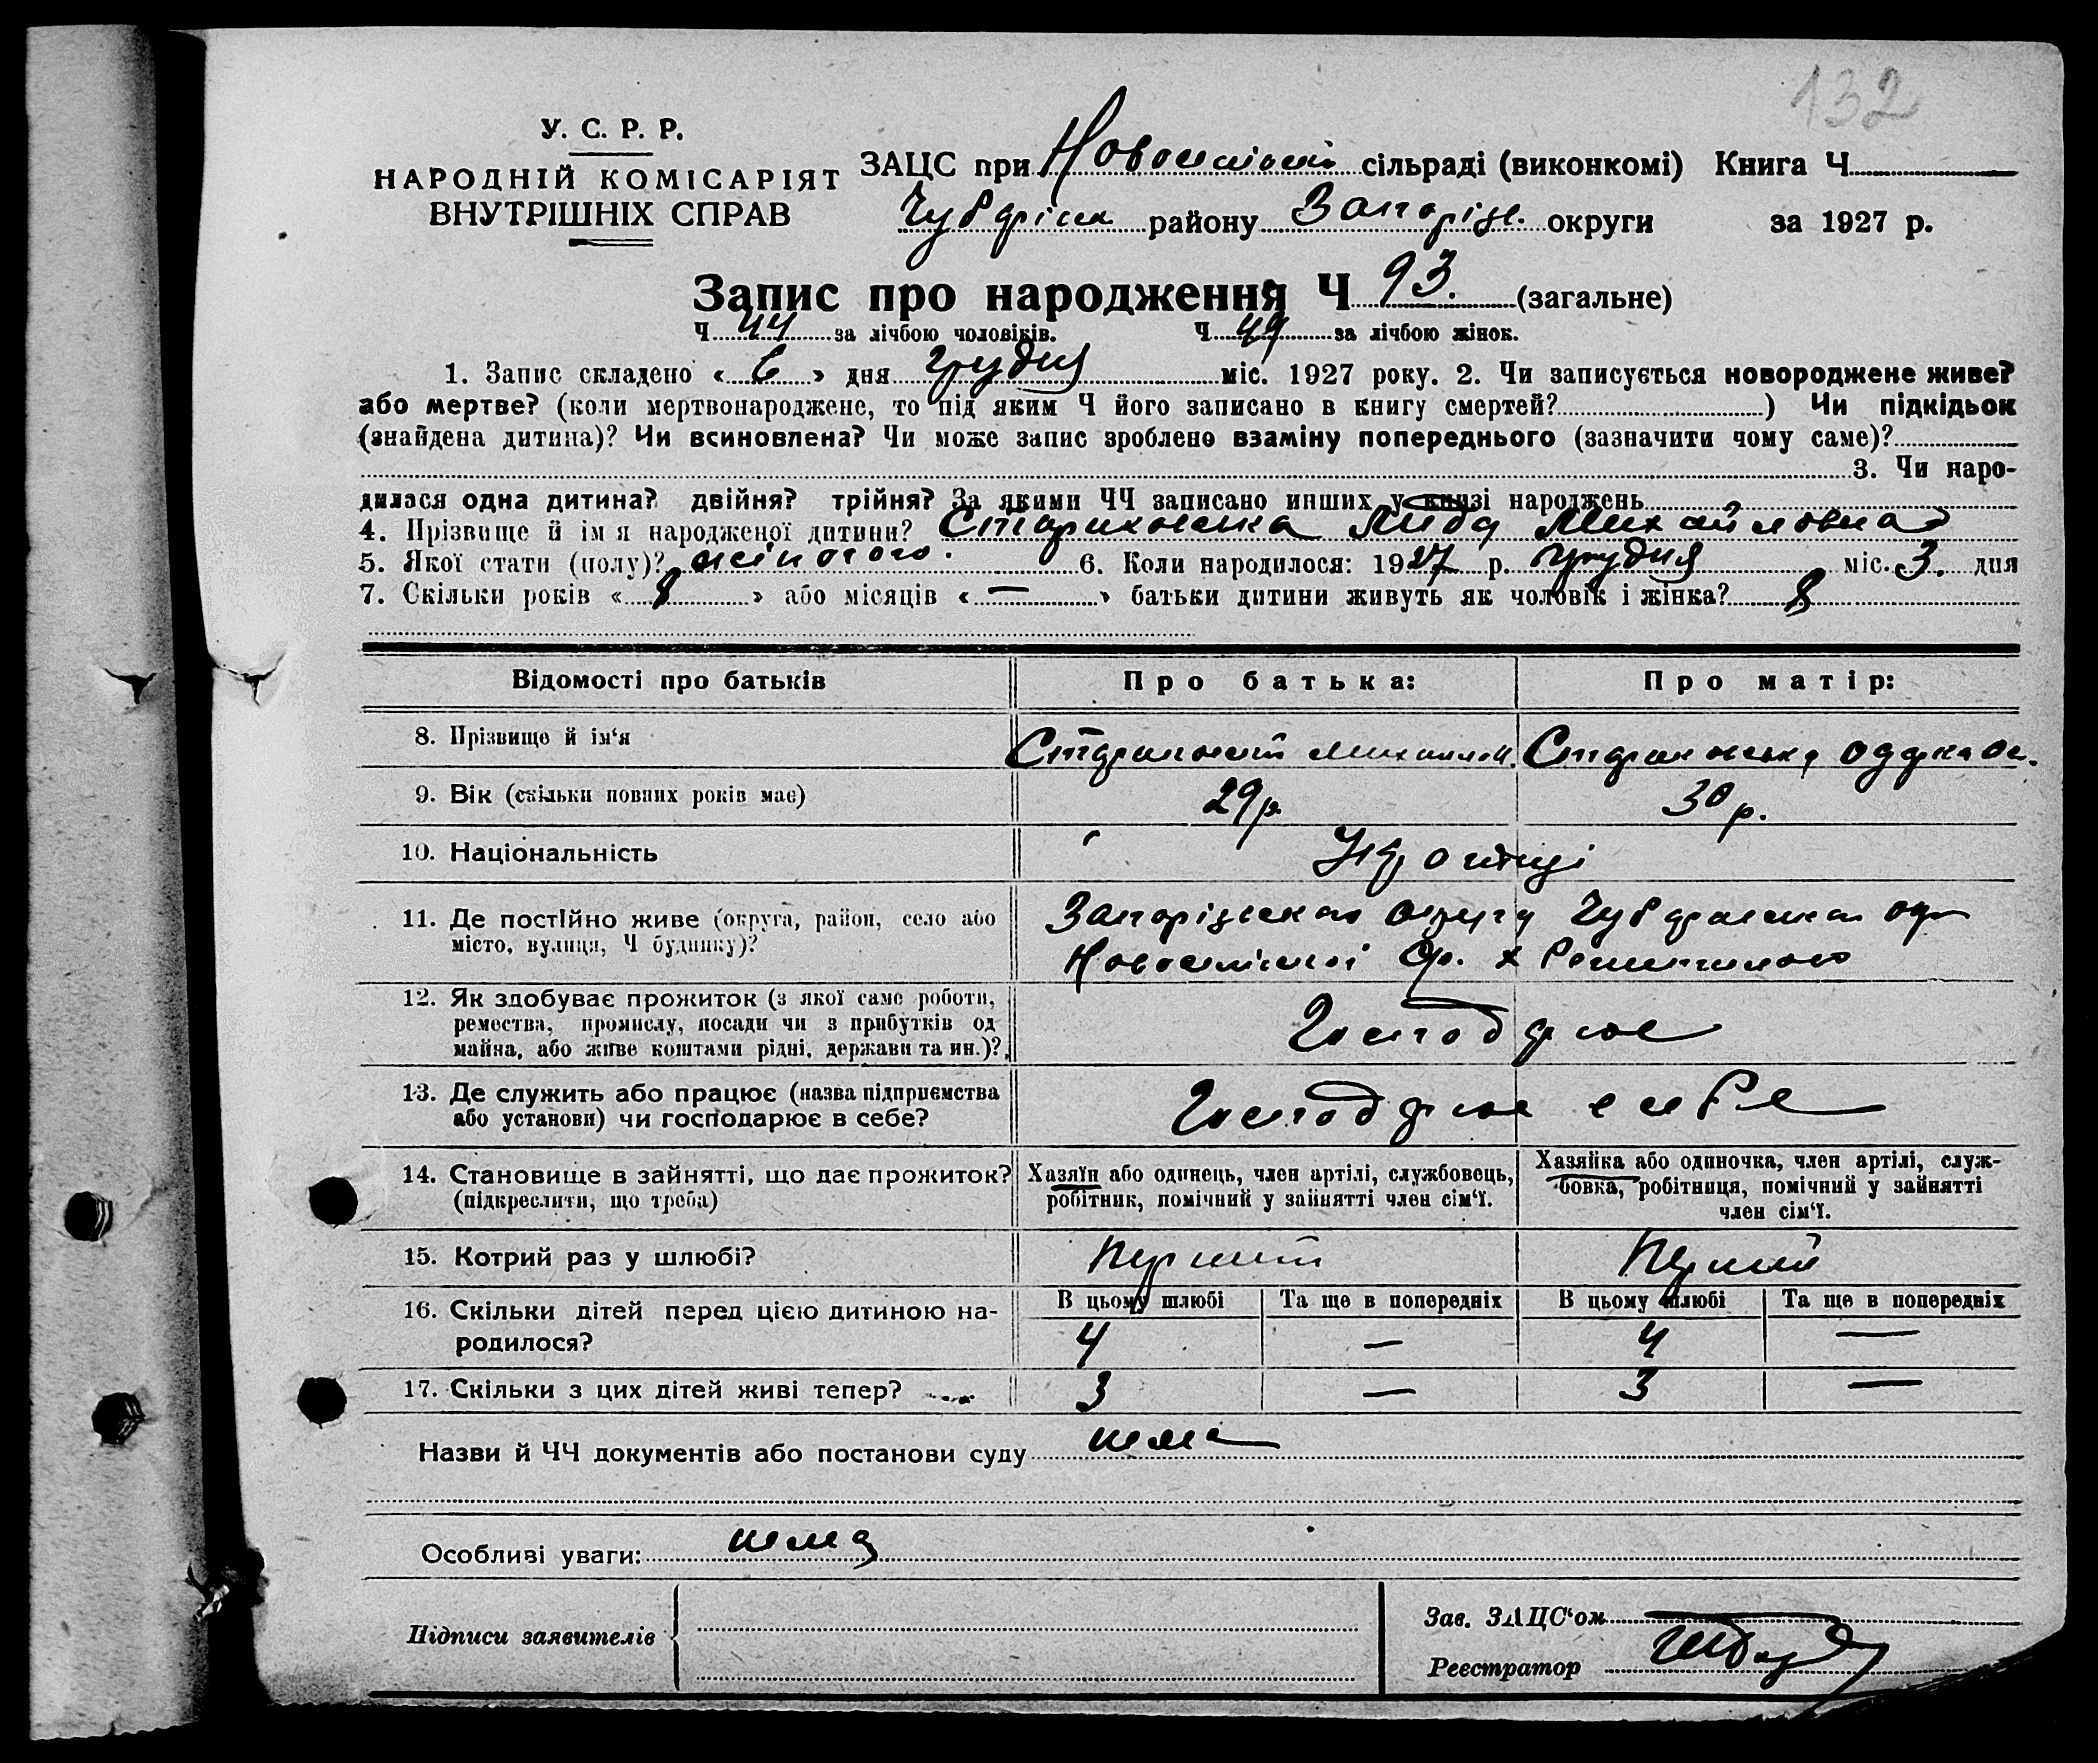 132
У. С. Р. Р.
НАРОДНІЙ КОМІСАРІЯТ
ВНУТРІШНІХ СПРАВ
ЗАЦС при сільраді (виконкомі) Книга Ч
району Запоріз. округи за 1927 р.
Запис про народження Ч 93. (загальне)
Ч 44 за лічбою чоловіків. Ч 49 за лічбою жінок.
1. Запис складено « 6 » дня грудня міс. 1927 року. 2. Чи записується новороджене живе?
або мертве? (коли мертвонароджене, то під яким Ч його записано в книгу смертей? ) Чи підкідьок
(знайдена дитина)? Чи всиновлена? Чи може запис зроблено взаміну попереднього (зазначити чому саме)?
3. Чи наро-
дилася одна дитина? двійня? трійня? За якими ЧЧ записано инших у книзі народжень
4. Прізвище й ім я народженої дитини? Михайловна
5. Якої стати (полу)? жіночого. 6. Коли народилося: 1927 р. грудня міс. 3. дня
7. Скільки років « 8 » або місяців « — » батьки дитини живуть як чоловік і жінка? 8
Відомості про батьків Про батька: Про матір:
8. Прізвище й ім'я
9. Вік (скільки повних років має) 29 р. 30 р.
10. Національність Українці
11. Де постійно живе (округа, район, село або
місто, вулиця, Ч будинку)?
12. Як здобуває прожиток (з якої саме роботи,
ремества, промислу, посади чи з прибутків од
майна, або живе коштами рідні, держави та ин.)?
13. Де служить або працює (назва підприємства
або установи) чи господарює в себе?
14. Становище в зайнятті, що дає прожиток?
(підкреслити, що треба)
Хазяїн або одинець, член артілі, службовець,
робітник, помічний у зайнятті член сім'ї.
Хазяйка або одиночка, член артілі, служ-
бовка, робітниця, помічний у зайнятті
член сім'ї.
15. Котрий раз у шлюбі? Перший Перший
16. Скільки дітей перед цією дитиною на-
родилося?
В цьому шлюбі Та ще в попередніх В цьому шлюбі Та ще в попередніх
4 — 4 —
17. Скільки з цих дітей живі тепер? 3 — 3 —
Назви й ЧЧ документів або постанови суду нема
Особливі уваги: нема
Підписи заявителів
Зав. ЗАЦС'ом
Реєстратор